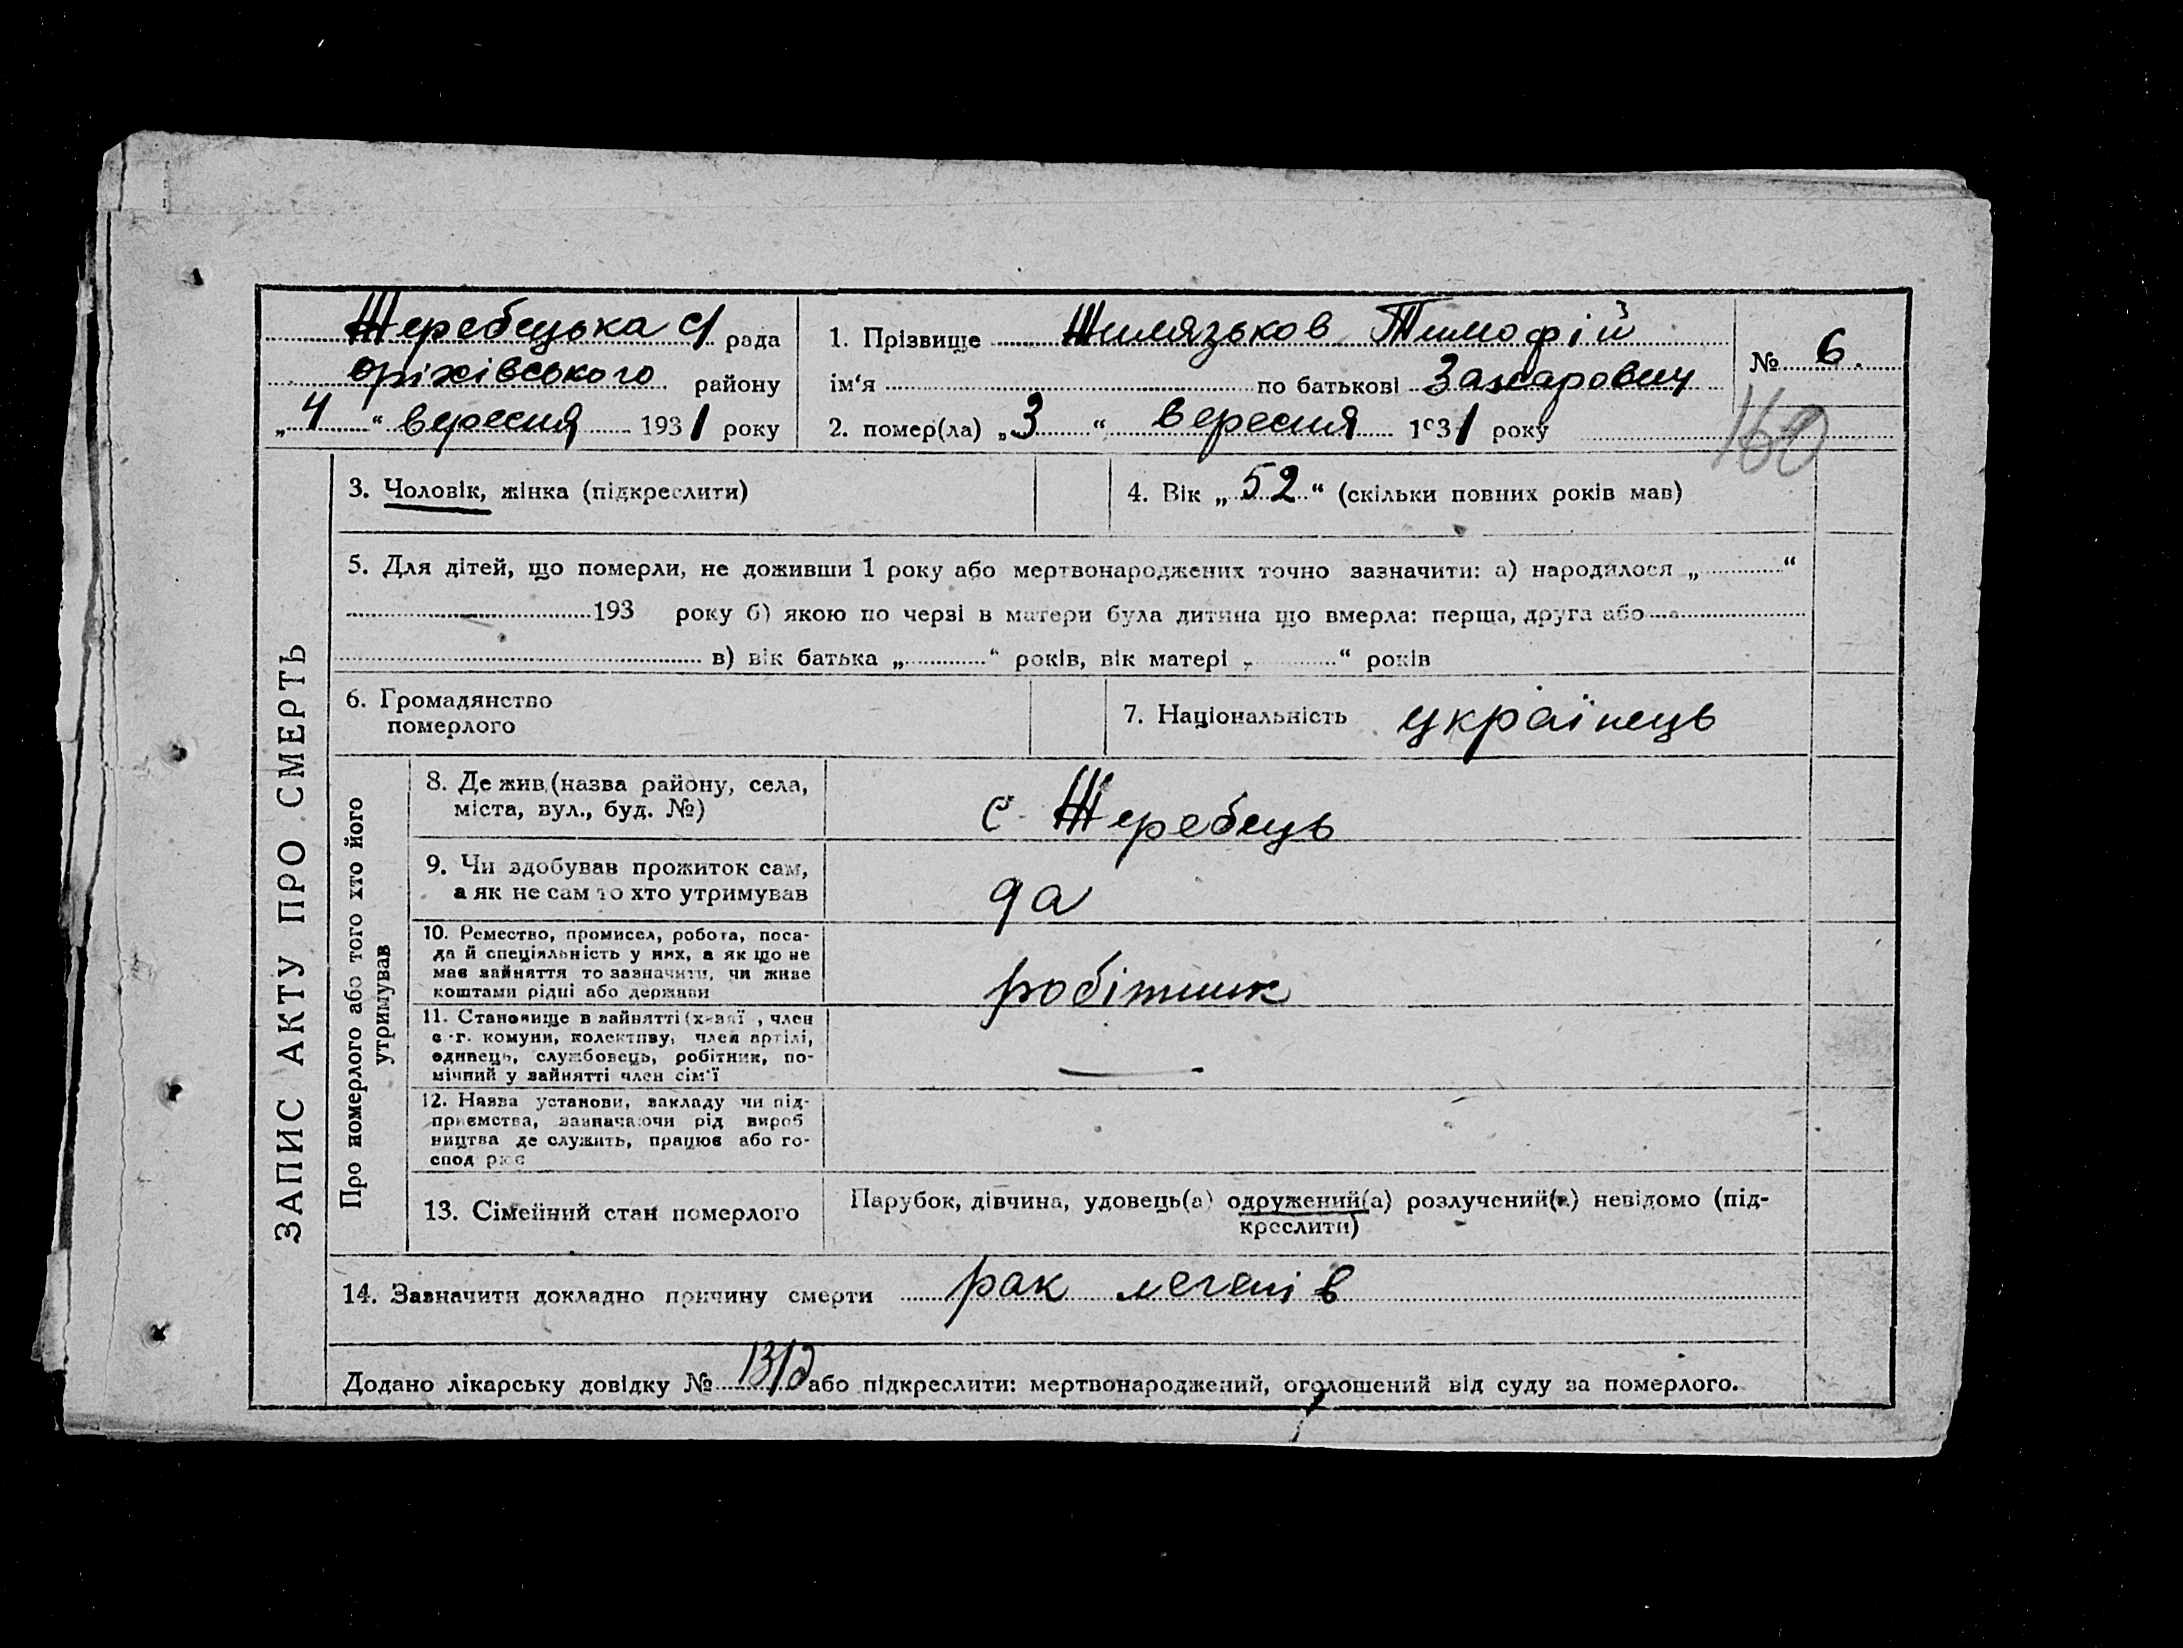 Жеребецька с/ рада
оріхівського району
„4“ вересня 1931 року
1. Прізвище Жилязьков Тимофій
ім'я по батькові Захарович
2. помер(ла) „3“ вересня 1931 року
№ 6.
160
ЗАПИС АКТУ ПРО СМЕРТЬ
3. Чоловік, жінка (підкреслити)
4. Вік „52“ (скільки повних років мав)
5. Для дітей, що померли, не доживши 1 року або мертвонароджених точно зазначити: а) народилося „ “
193 року б) якою по черзі в матери була дитина що вмерла: перша, друга або
в) вік батька „ “ років, вік матері „ “ років
6. Громадянство
померлого
7. Національність українець
Про померлого або того хто його
утримував
8. Де жив (назва району, села,
міста, вул., буд. №)
с. Жеребець
9. Чи здобував прожиток сам,
а як не сам то хто утримував
да
10. Ремество, промисел, робота, поса-
да й спеціяльність у них, а як що не
має зайняття то зазначити, чи живе
коштами рідні або держави
робітник
11. Становище в зайнятті (х-вазї , член
с.-г. комуни, колективу, член артілі,
одинець, службовець, робітник, по-
мічний у зайнятті член сім'ї
—
12. Назва установи, закладу чи під-
приємства, зазначаючи рід вироб
ництва де служить, працює або го-
спод рює
13. Сімейний стан померлого
Парубок, дівчина, удовець(а) одружений(а) розлучений(а) невідомо (під-
креслити)
14. Зазначити докладно причину смерти рак легенів
Додано лікарську довідку № 13/д або підкреслити: мертвонароджений, оголошений від суду за померлого.